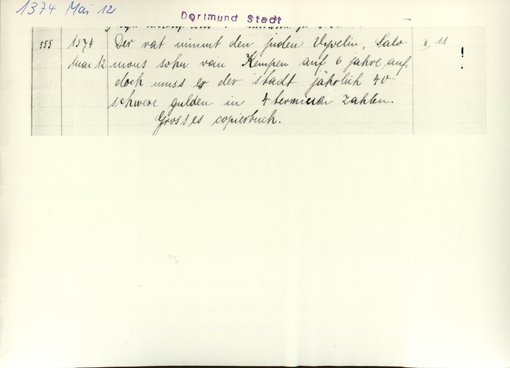 1374 Mai 12
Dortmund Stadt
155 1374 Der rat nimmt den juden Vyvelin, Salo
Mai 12 mons sohn van Kempen auf 6 jahre auf,
doch muss er der stadt jährlich 40
schwere gulden in 4 terminen zahlen.
Grosses copierbuch.
11
!